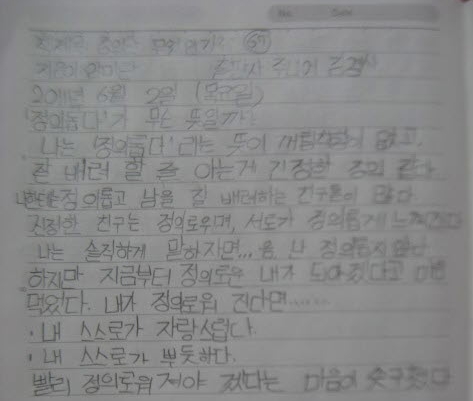 No. Date
2011년 6월 2일 (목요일)
'정의롭다'가 무슨 뜻일까?
나는 '정의롭다'라는 뜻이 거림칙함이 없고,
잘 배려 할 줄 아는게 진정한 정의 같다
나한테는 정의롭고 남을 잘 배려하는 친구들이 많다
진정한 친구는 정의로우며, 서로가 정의롭게 느껴진다
나는 솔직하게 말하자면... 음. 난 정의롭지 않다
하지만 지금부터 정의로운 내가 되야겠다고 마음
먹었다. 내가 정의로워 진다면......
· 내 스스로가 자랑스럽다.
· 내 스스로가 뿌듯하다.
빨리 정의로워져야 겠다는 마음이 솟구쳤다